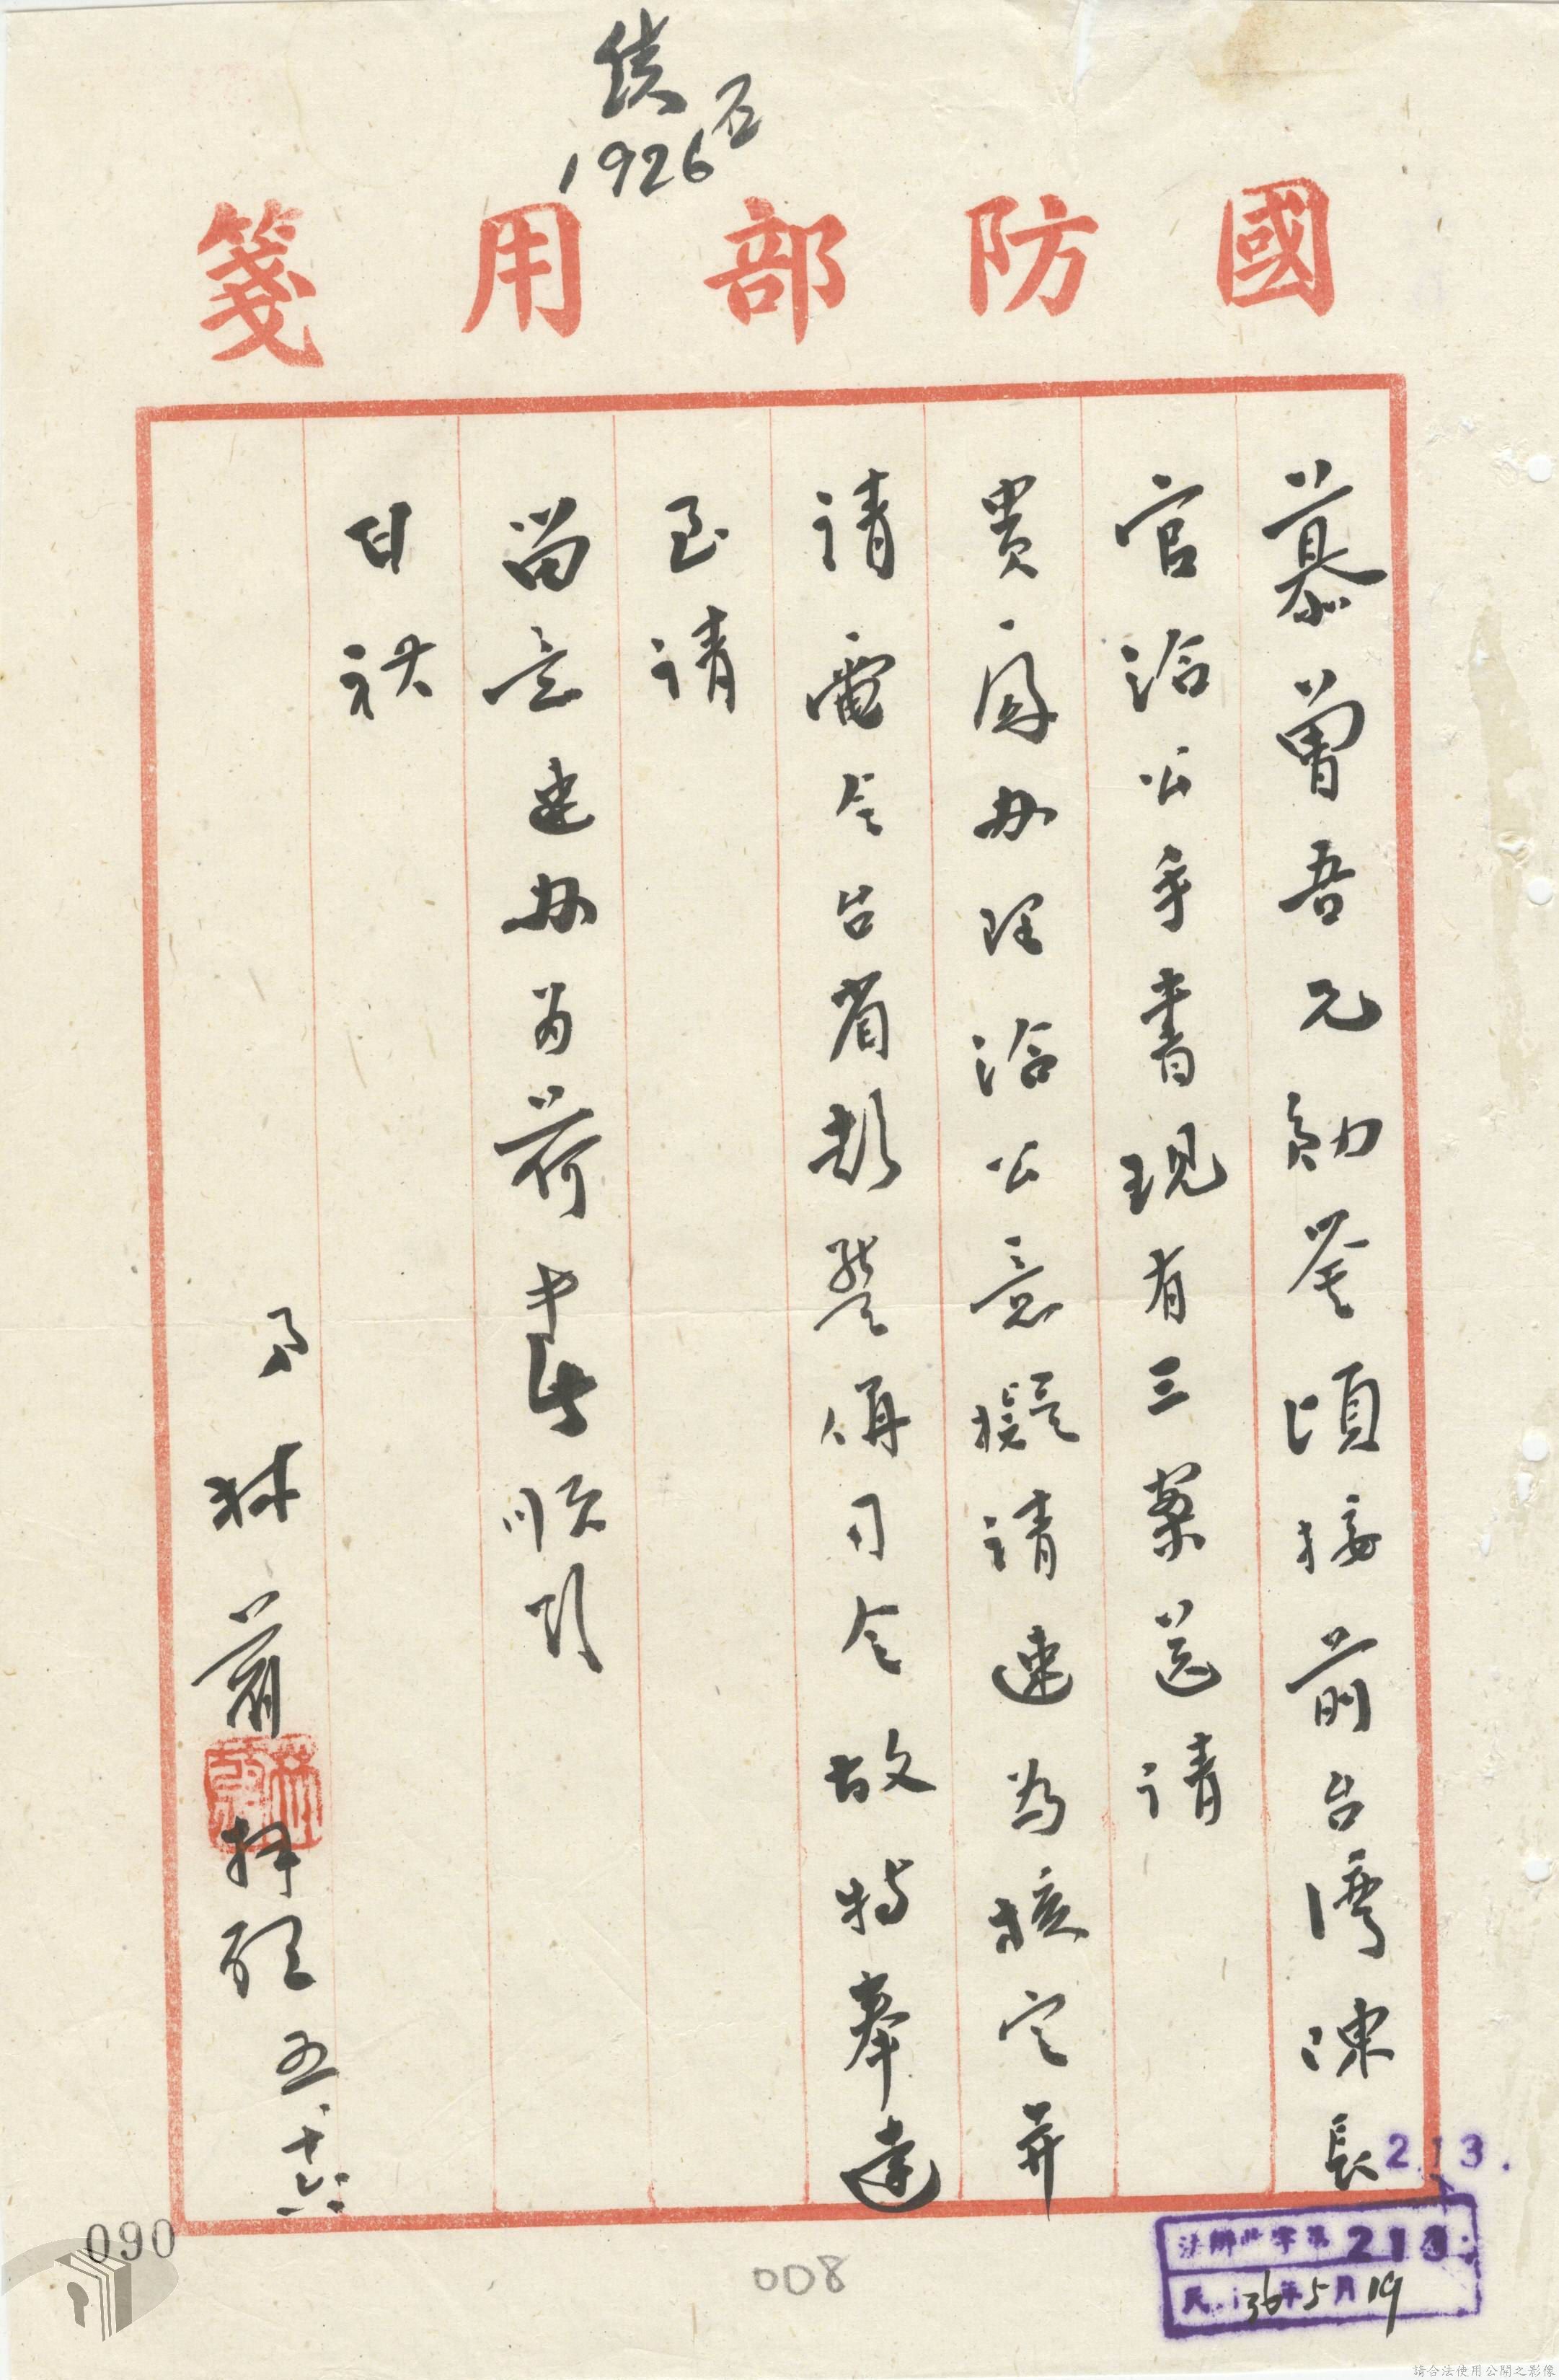 1926
國防部用箋
慕曾吾兄勛鑒頃接前台灣陳長
官洽公手書現有三案送請
貴局办理洽公意擬請速為核定并
請電令台省彭警備司令故特奉達
至請
留意速办为荷专此順頌
日祺
弟林蔚拜啟五十六
林蔚
213.
法辦 字第213
民. 36年5月19
090
008
請合法使用公開之影像